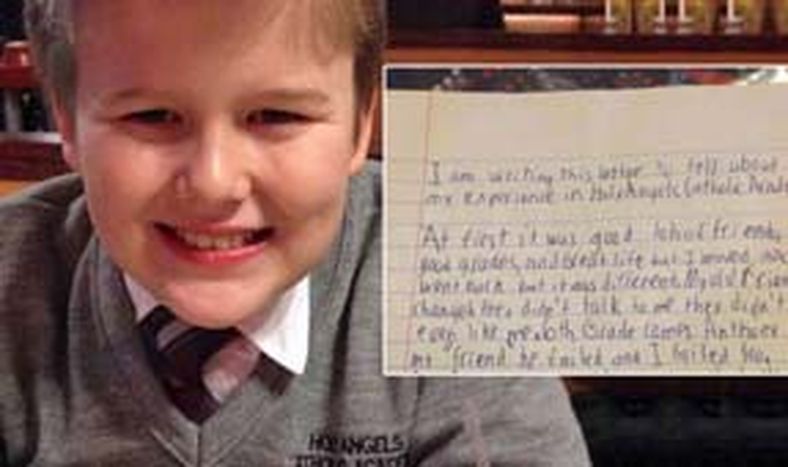 I am writing this letter to tell about
my experience in Holy Angels Catholic
At first it was good lots of friends,
good grades, and great life but I moved and
went back but it was different. My old friends
changed they didn't talk to me they didn't
even like me. 6th Grade comes Anthony
my friend he failed and I failed too,
HOLY ANGELS
CATHOLIC ACADEMY